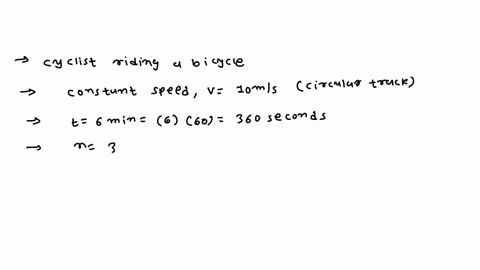 → cyclist riding a bicycle
→ constant speed, v= 10m/s (circular track)
→ t= 6 min = (6) (60) = 360 seconds
→ n= 3